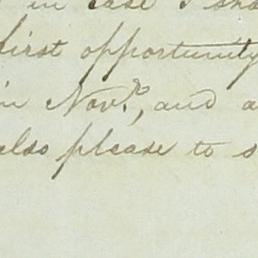 in case I sha
first opportunity
in Novr, and a
also please to s